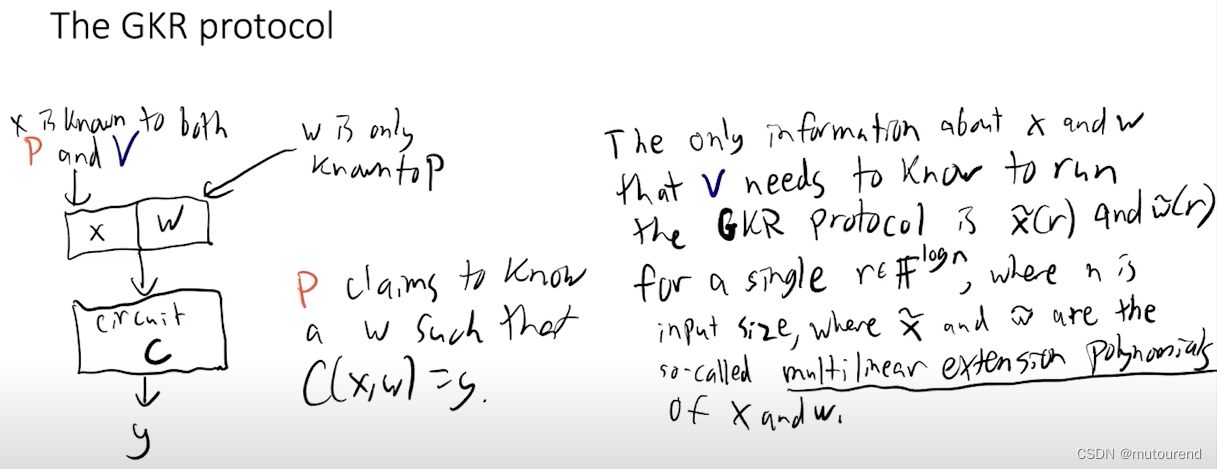 The GKR protocol
x is known to both
P and V
w is only
known to P
x
w
circuit
C
y
P claims to know
a w such that
C(x,w)=y.
The only information about x and w
that V needs to know to run
the GKR protocol is x̃(r) and w̃(r)
for a single r∈𝔽^log n, where n is
input size, where x̃ and w̃ are the
so-called multilinear extension polynomials
of x and w.
CSDN @mutourend